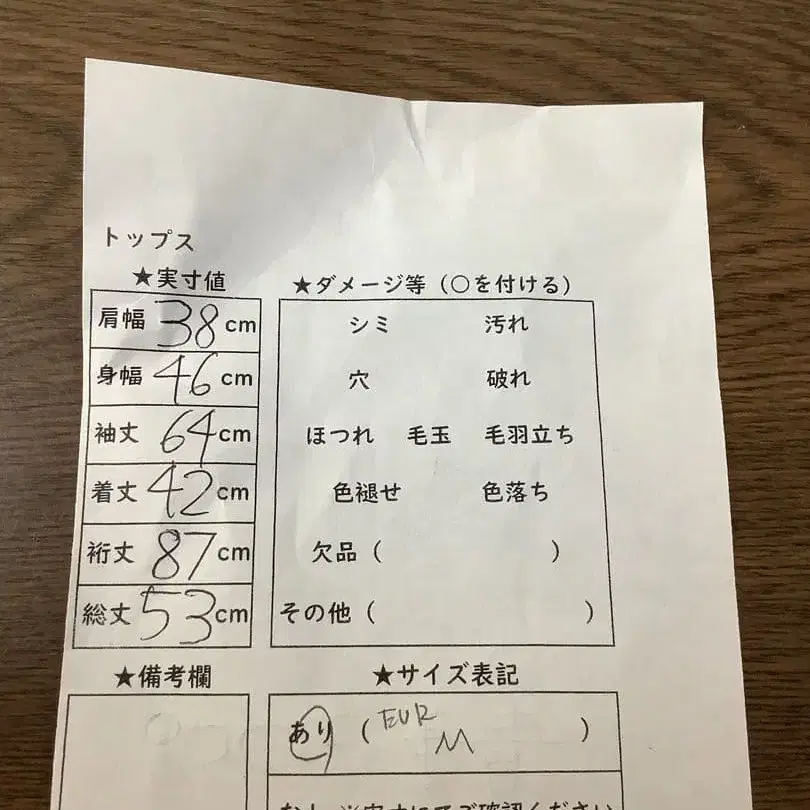 トップス
★実寸値
肩幅 38cm
身幅 46cm
袖丈 64cm
着丈 42cm
裄丈 87cm
総丈 53cm
★ダメージ等（○を付ける）
シミ 汚れ
穴 破れ
ほつれ 毛玉 毛羽立ち
色褪せ 色落ち
欠品（ ）
その他（ ）
★備考欄
★サイズ表記
あり（EUR M ）
なし ※実寸にてご確認ください